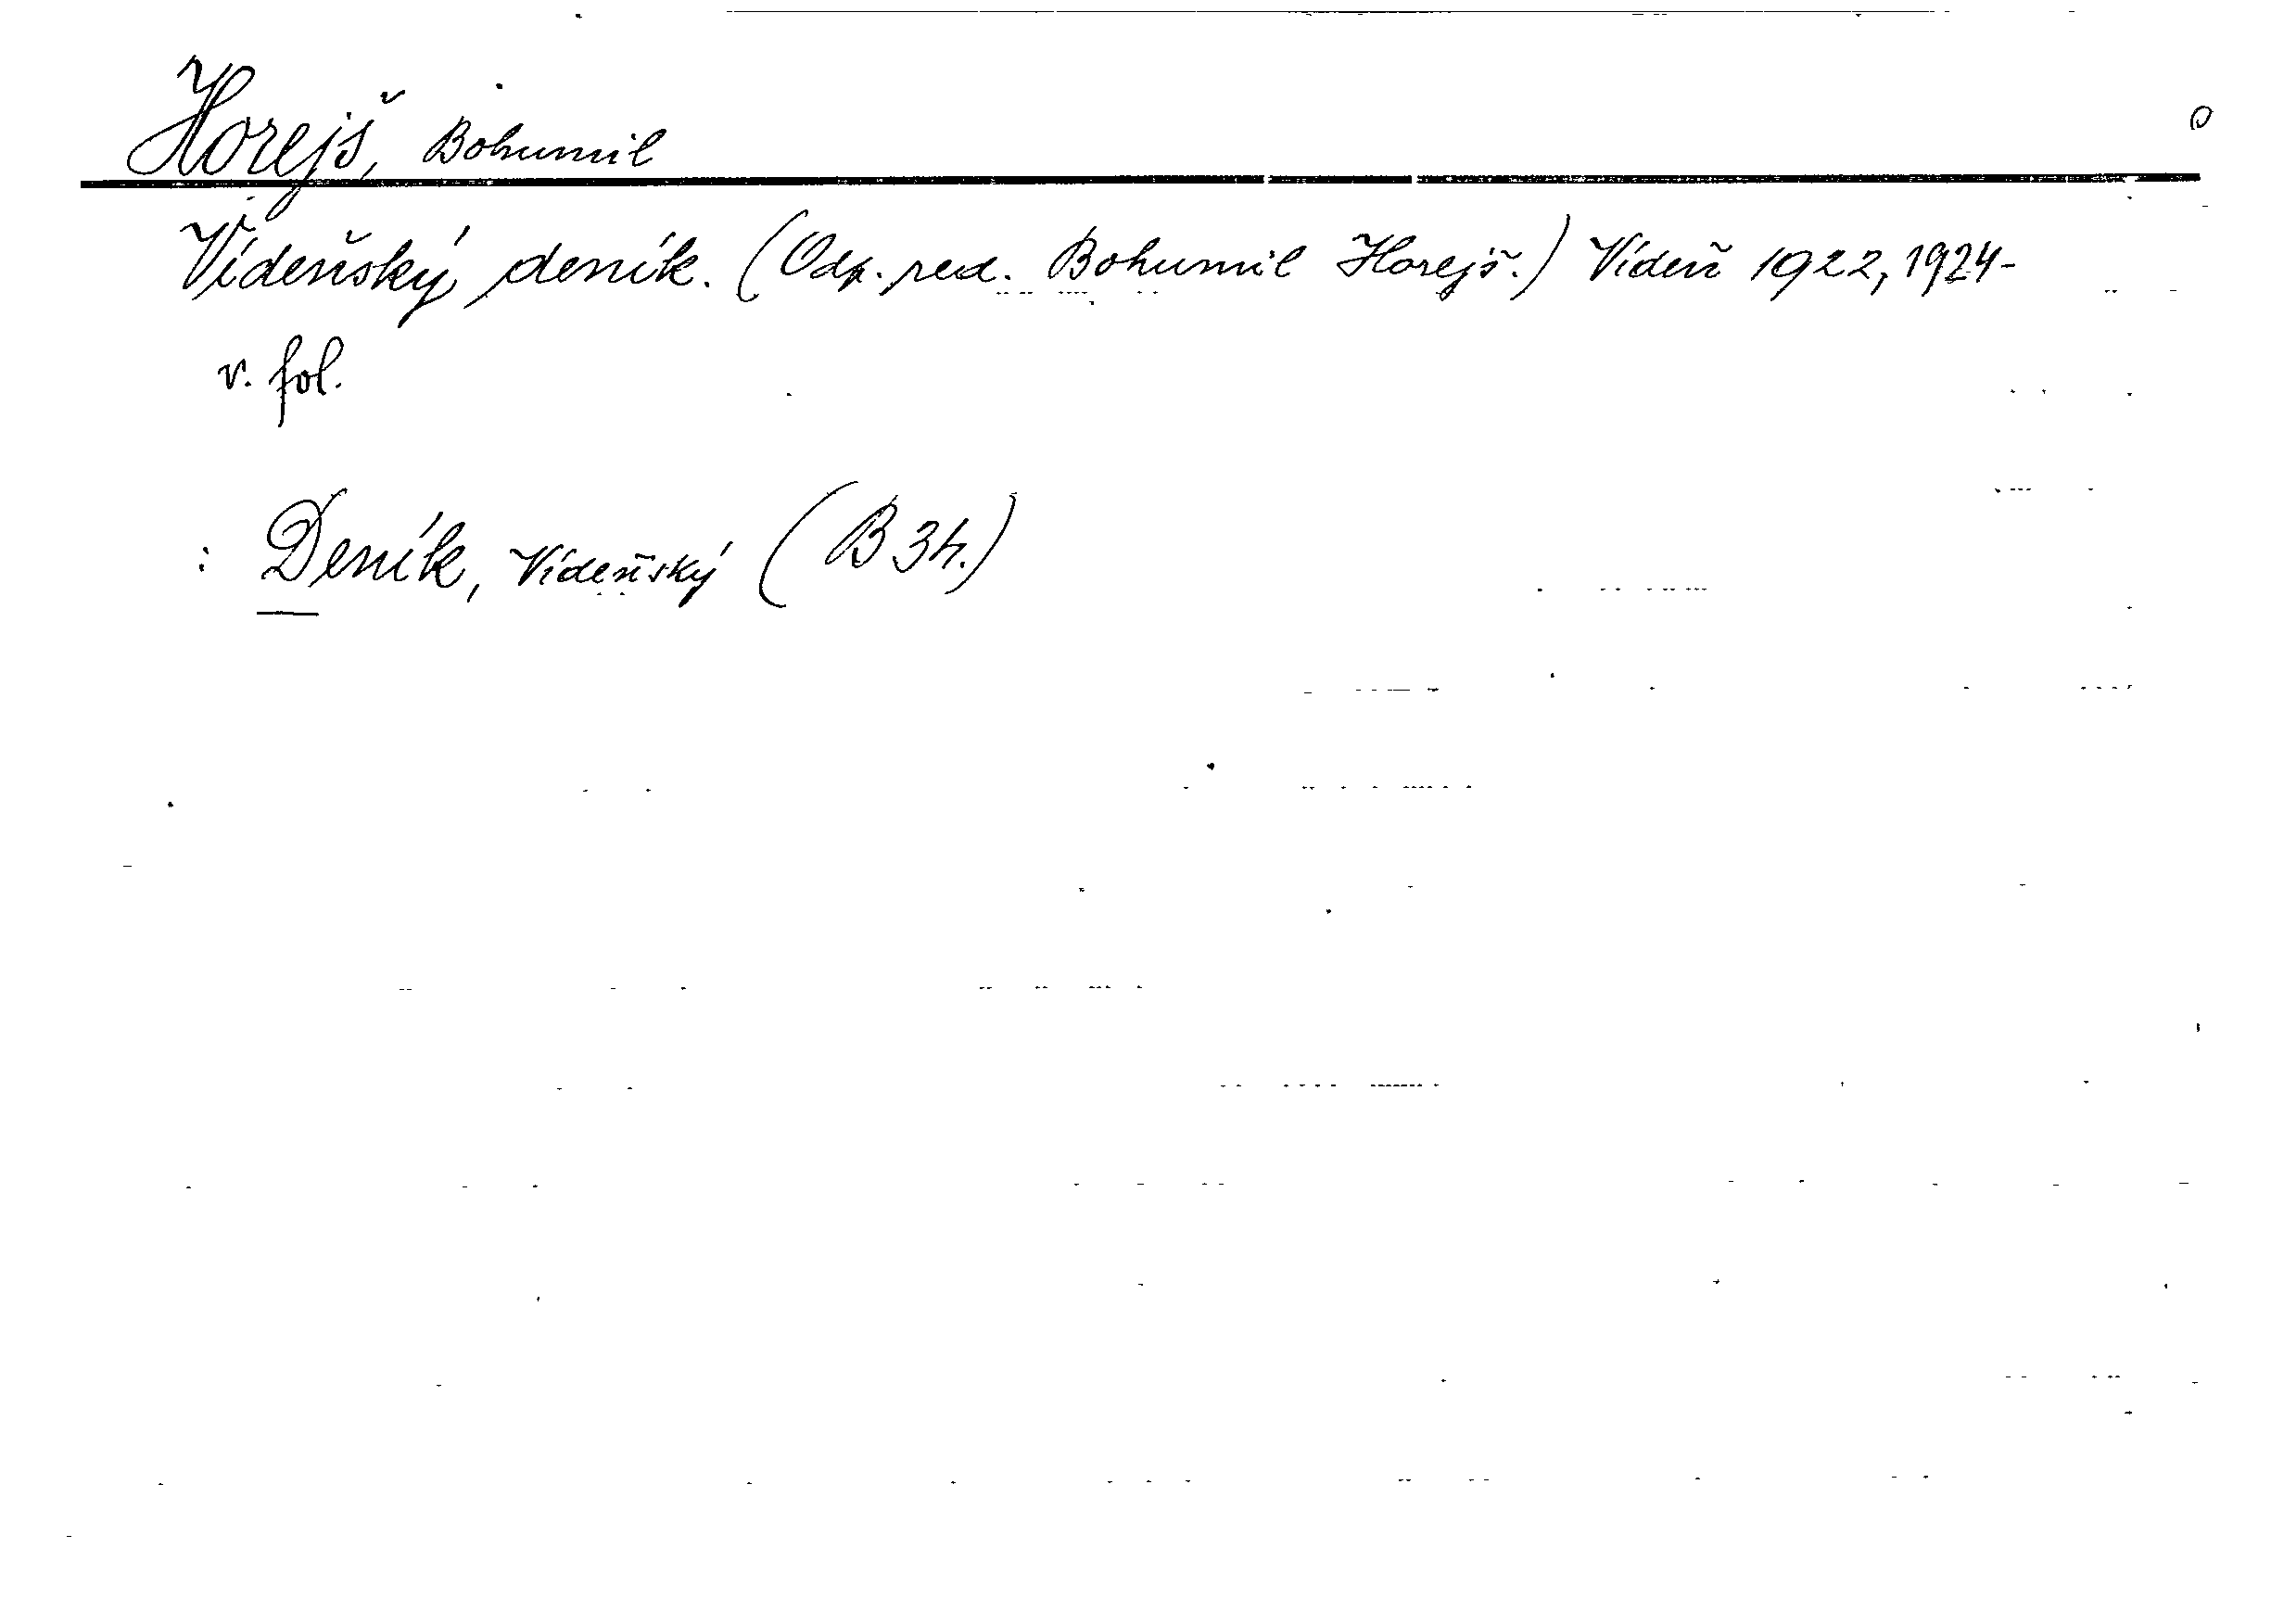 Horejš, Bohumil
Vídeňský deník. (Odp. red. Bohumil Horejš.) Vídeň 1922, 1924-
v. fol.
: Deník, Vídeňský (B 3h.)